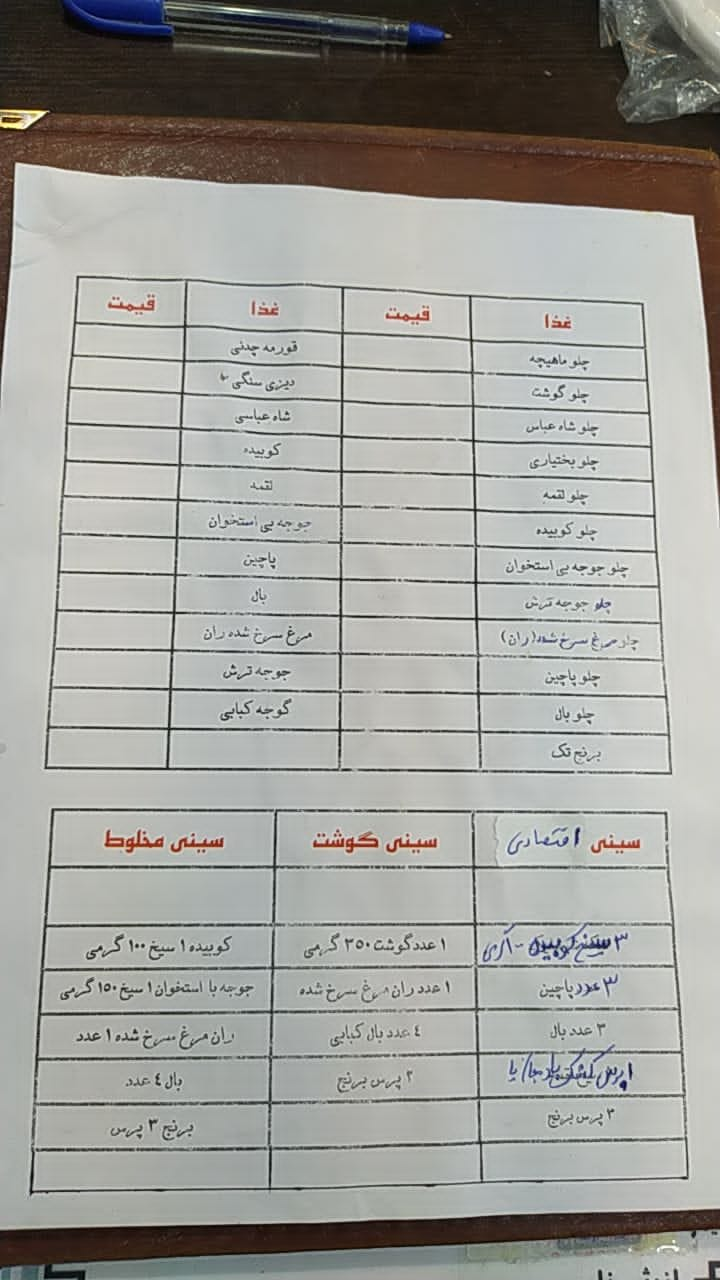 غذا قیمت غذا قیمت
چلو ماهیچه قورمه چدنی
چلو گوشت دیزی سنگی
چلو شاه عباس شاه عباسی
چلو بختیاری کوبیده
چلو لقمه لقمه
چلو کوبیده جوجه بی استخوان
چلو جوجه بی استخوان پاچین
چلو جوجه ترش بال
چلو مرغ سرخ شده (ران) مرغ سرخ شده ران
چلو پاچین جوجه ترش
چلو بال گوجه کبابی
برنج تک
سینی اقتصادی سینی گوشت سینی مخلوط
۳ سیخ کوبیده گرمی ۱ عدد گوشت ۲۵۰ گرمی کوبیده ۱ سیخ ۱۰۰ گرمی
۳ عدد پاچین ۱ عدد ران مرغ سرخ شده جوجه با استخوان ۱ سیخ ۱۵۰ گرمی
۳ عدد بال ٤ عدد بال کبابی ران مرغ سرخ شده ۱ عدد
۱ پرس کشک بادمجان ۲ پرس برنج بال ٤ عدد
۳ پرس برنج برنج ۳ پرس